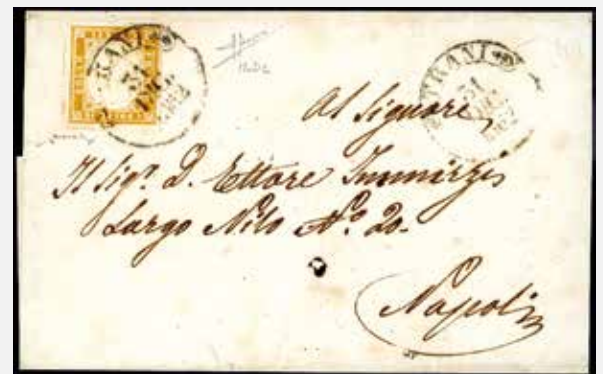 TRANI
31
DIC
1862
TRANI
31
DIC
1862
Al Signore
Il Sigr. D. Ettore Immirzi
Largo Nilo No. 20.
Napoli